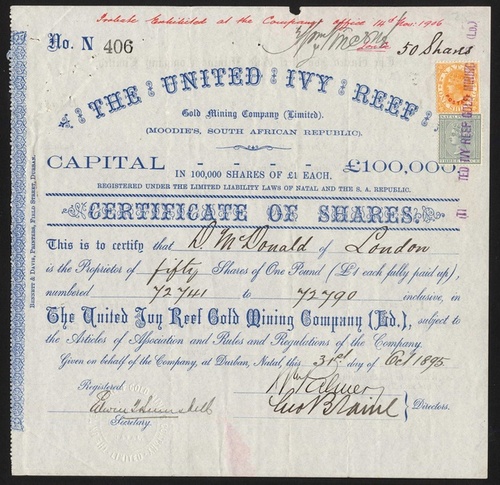 Probate Exhibited at the Company's office 14th Nov: 1906
No. N 406
50 Shares
THE UNITED IVY REEF
Gold Mining Company (Limited).
(MOODIE'S, SOUTH AFRICAN REPUBLIC).
CAPITAL - - - - £100,000
IN 100,000 SHARES OF £1 EACH.
REGISTERED UNDER THE LIMITED LIABILITY LAWS OF NATAL AND THE S. A. REPUBLIC.
CERTIFICATE OF SHARES.
This is to certify that D. McDonald of London
is the Proprietor of fifty Shares of One Pound (£1 each fully paid up),
numbered 72741 to 72790 inclusive, in
The United Ivy Reef Gold Mining Company (Ld.), subject to
the Articles of Association and Rules and Regulations of the Company.
Given on behalf of the Company, at Durban, Natal, this 31st day of Oct 1895
Registered.
Secretary.
Geo B Laint
Directors.
BENNETT & DAVIS, PRINTERS, FIELD STREET, DURBAN.